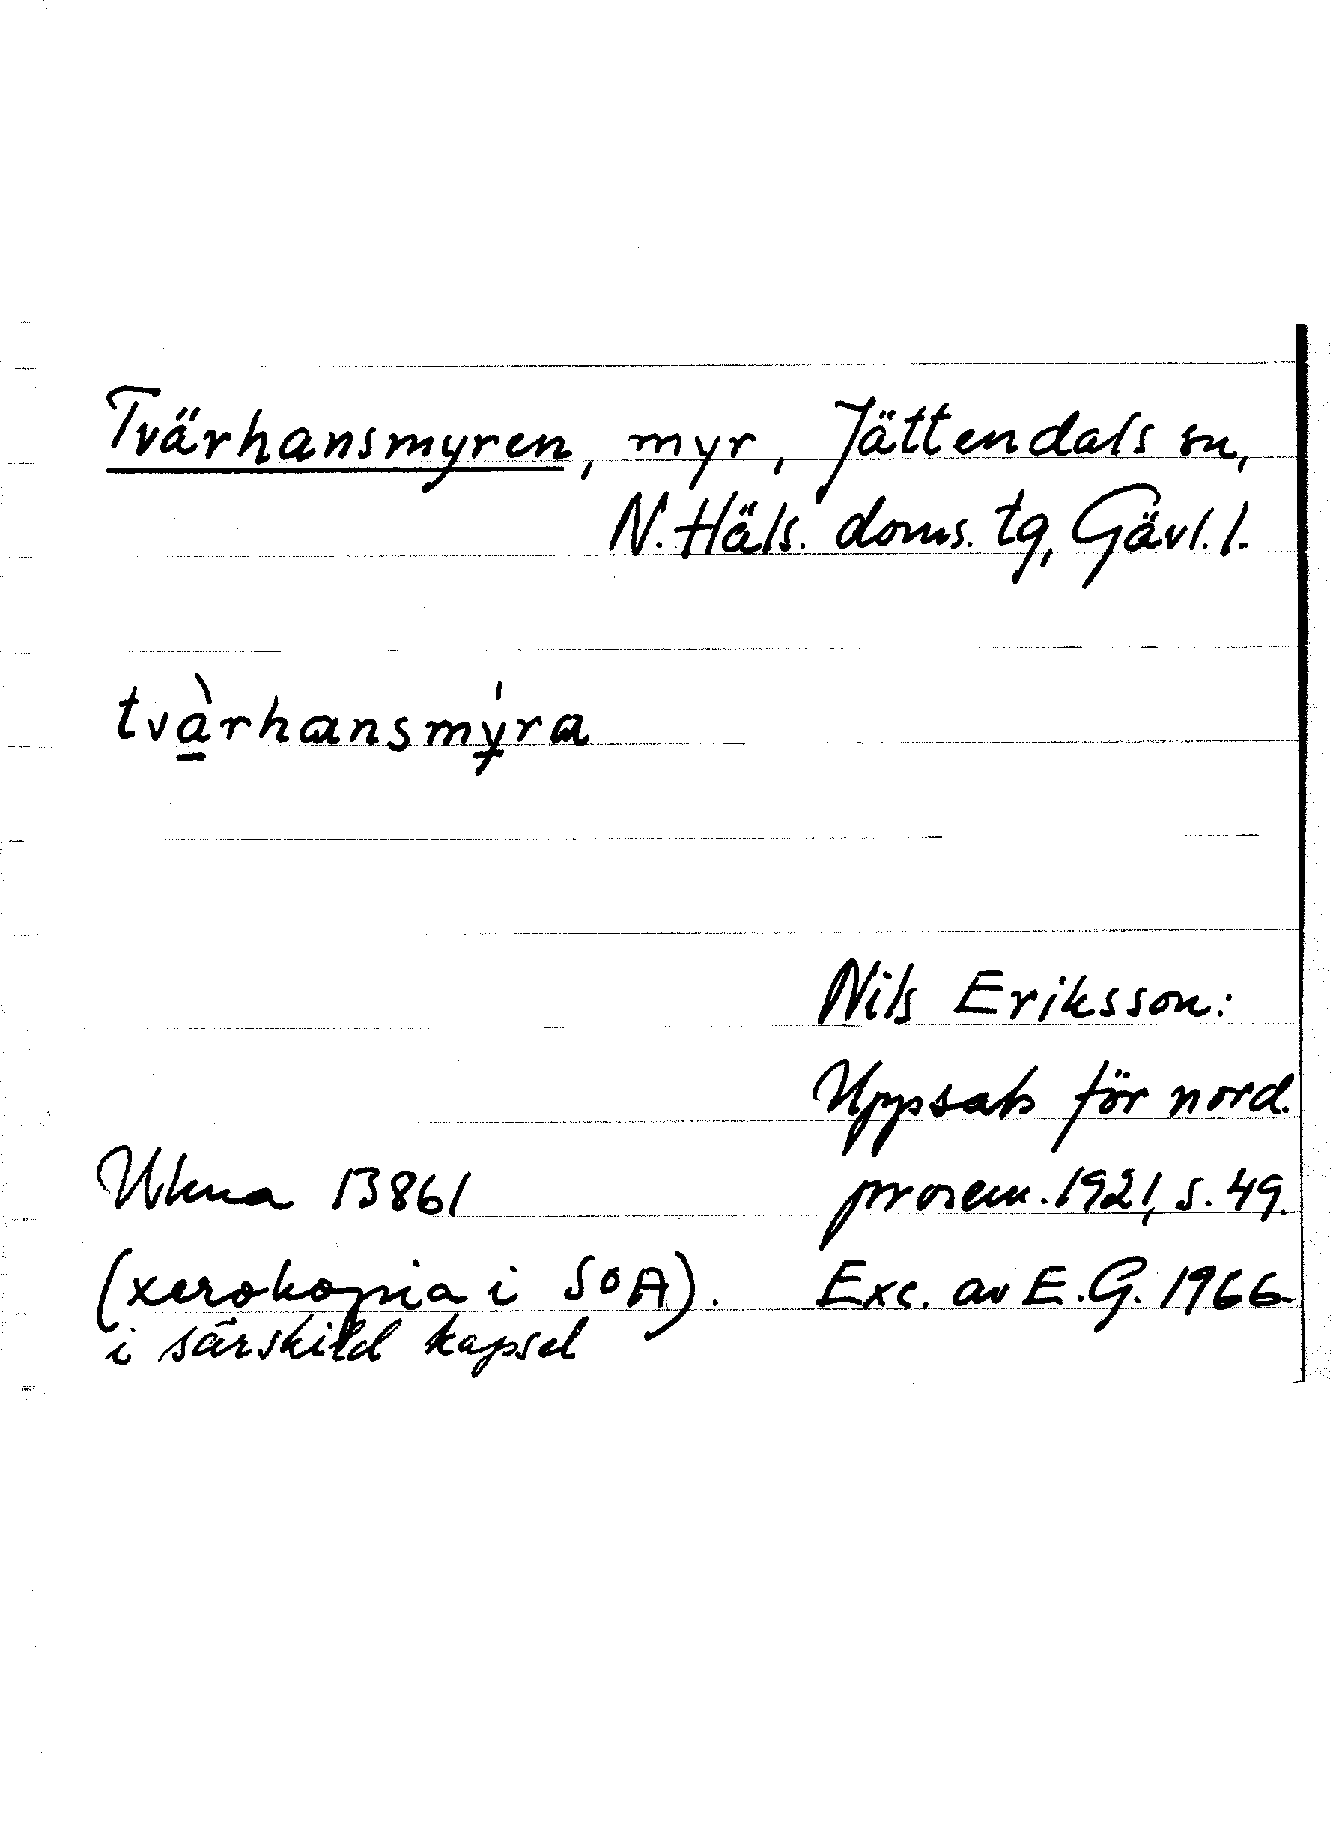 Tvärhansmyren, myr, Jättendals sn,
N. Häls. doms. tg, Gävl. l.
tvàrhansmýra
Nils Eriksson:
Uppsats för nord.
Ukna 13861
prosem. 1921, s. 49.
(xerokopia i SOA).
Exc. av E.G. 1966
i särskild kapsel